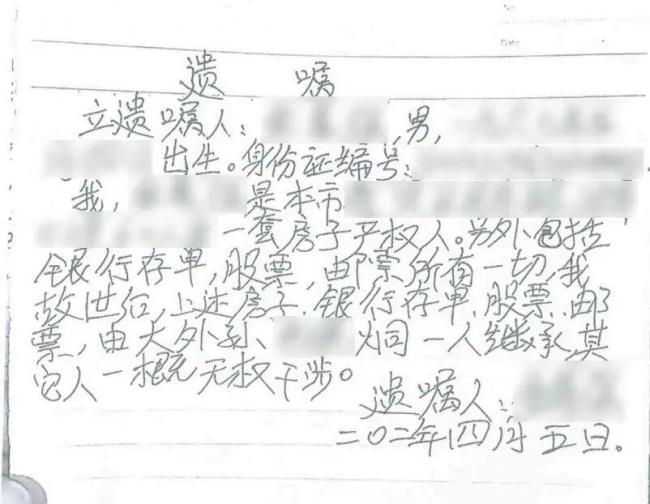 No
Date
遗 嘱
立遗嘱人: ,男,
出生。身份证编号:
我, 是本市
一套房子产权人。另外包括
银行存单,股票,邮票所有一切,我
故世后,上述房子.银行存单.股票.邮
票,由大外孙 炯一人继承,其
它人一概无权干涉。
遗嘱人:
二〇二年四月五日。